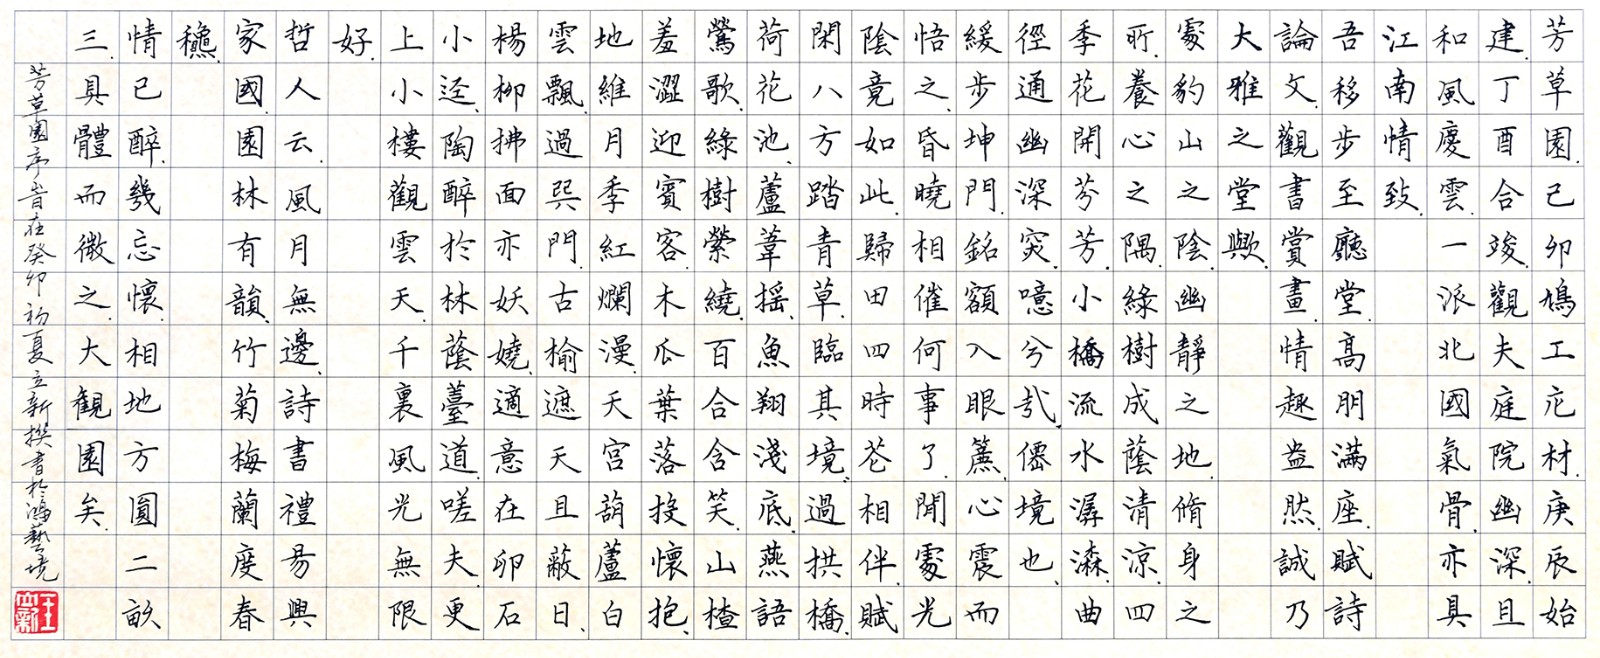 芳草園己卯鳩工庀材庚辰始
建丁酉合竣觀夫庭院幽深且
和風慶雲一派北國氣骨亦具
江南情致
吾移步至廳堂高朋滿座賦詩
論文觀書賞畫情趣盎然誠乃
大雅之堂歟
處豹山之陰幽靜之地脩身之
所養心之隅綠樹成蔭清涼四
季花開芬芳小橋流水潺潺曲
徑通幽深窔噫兮哉僊境也
緩步坤門銘額入眼簾心震而
悟之昏曉相催何事了聞處光
陰竟如此歸田四時花相伴賦
閑八方踏青草臨其境過拱橋
荷花池蘆葦搖魚翔淺底燕語
鶯歌綠樹縈繞百合含笑山楂
羞澀迎賓客木瓜葉落投懷抱
地維月季紅爛漫天宮葫蘆白
雲飄過巽門古榆遮天且蔽日
楊柳拂面亦妖嬈適意在卯石
小逕陶醉於林蔭薹道嗟夫更
上小樓觀雲天千裏風光無限
好
哲人云風月無邊詩書禮易興
家國園林有韻竹菊梅蘭度春
穐
情已醉幾忘懷相地方圓二畝
三具體而微之大觀園矣
芳草園序旹在癸卯初夏立新撰書於鴻藝境
王立新